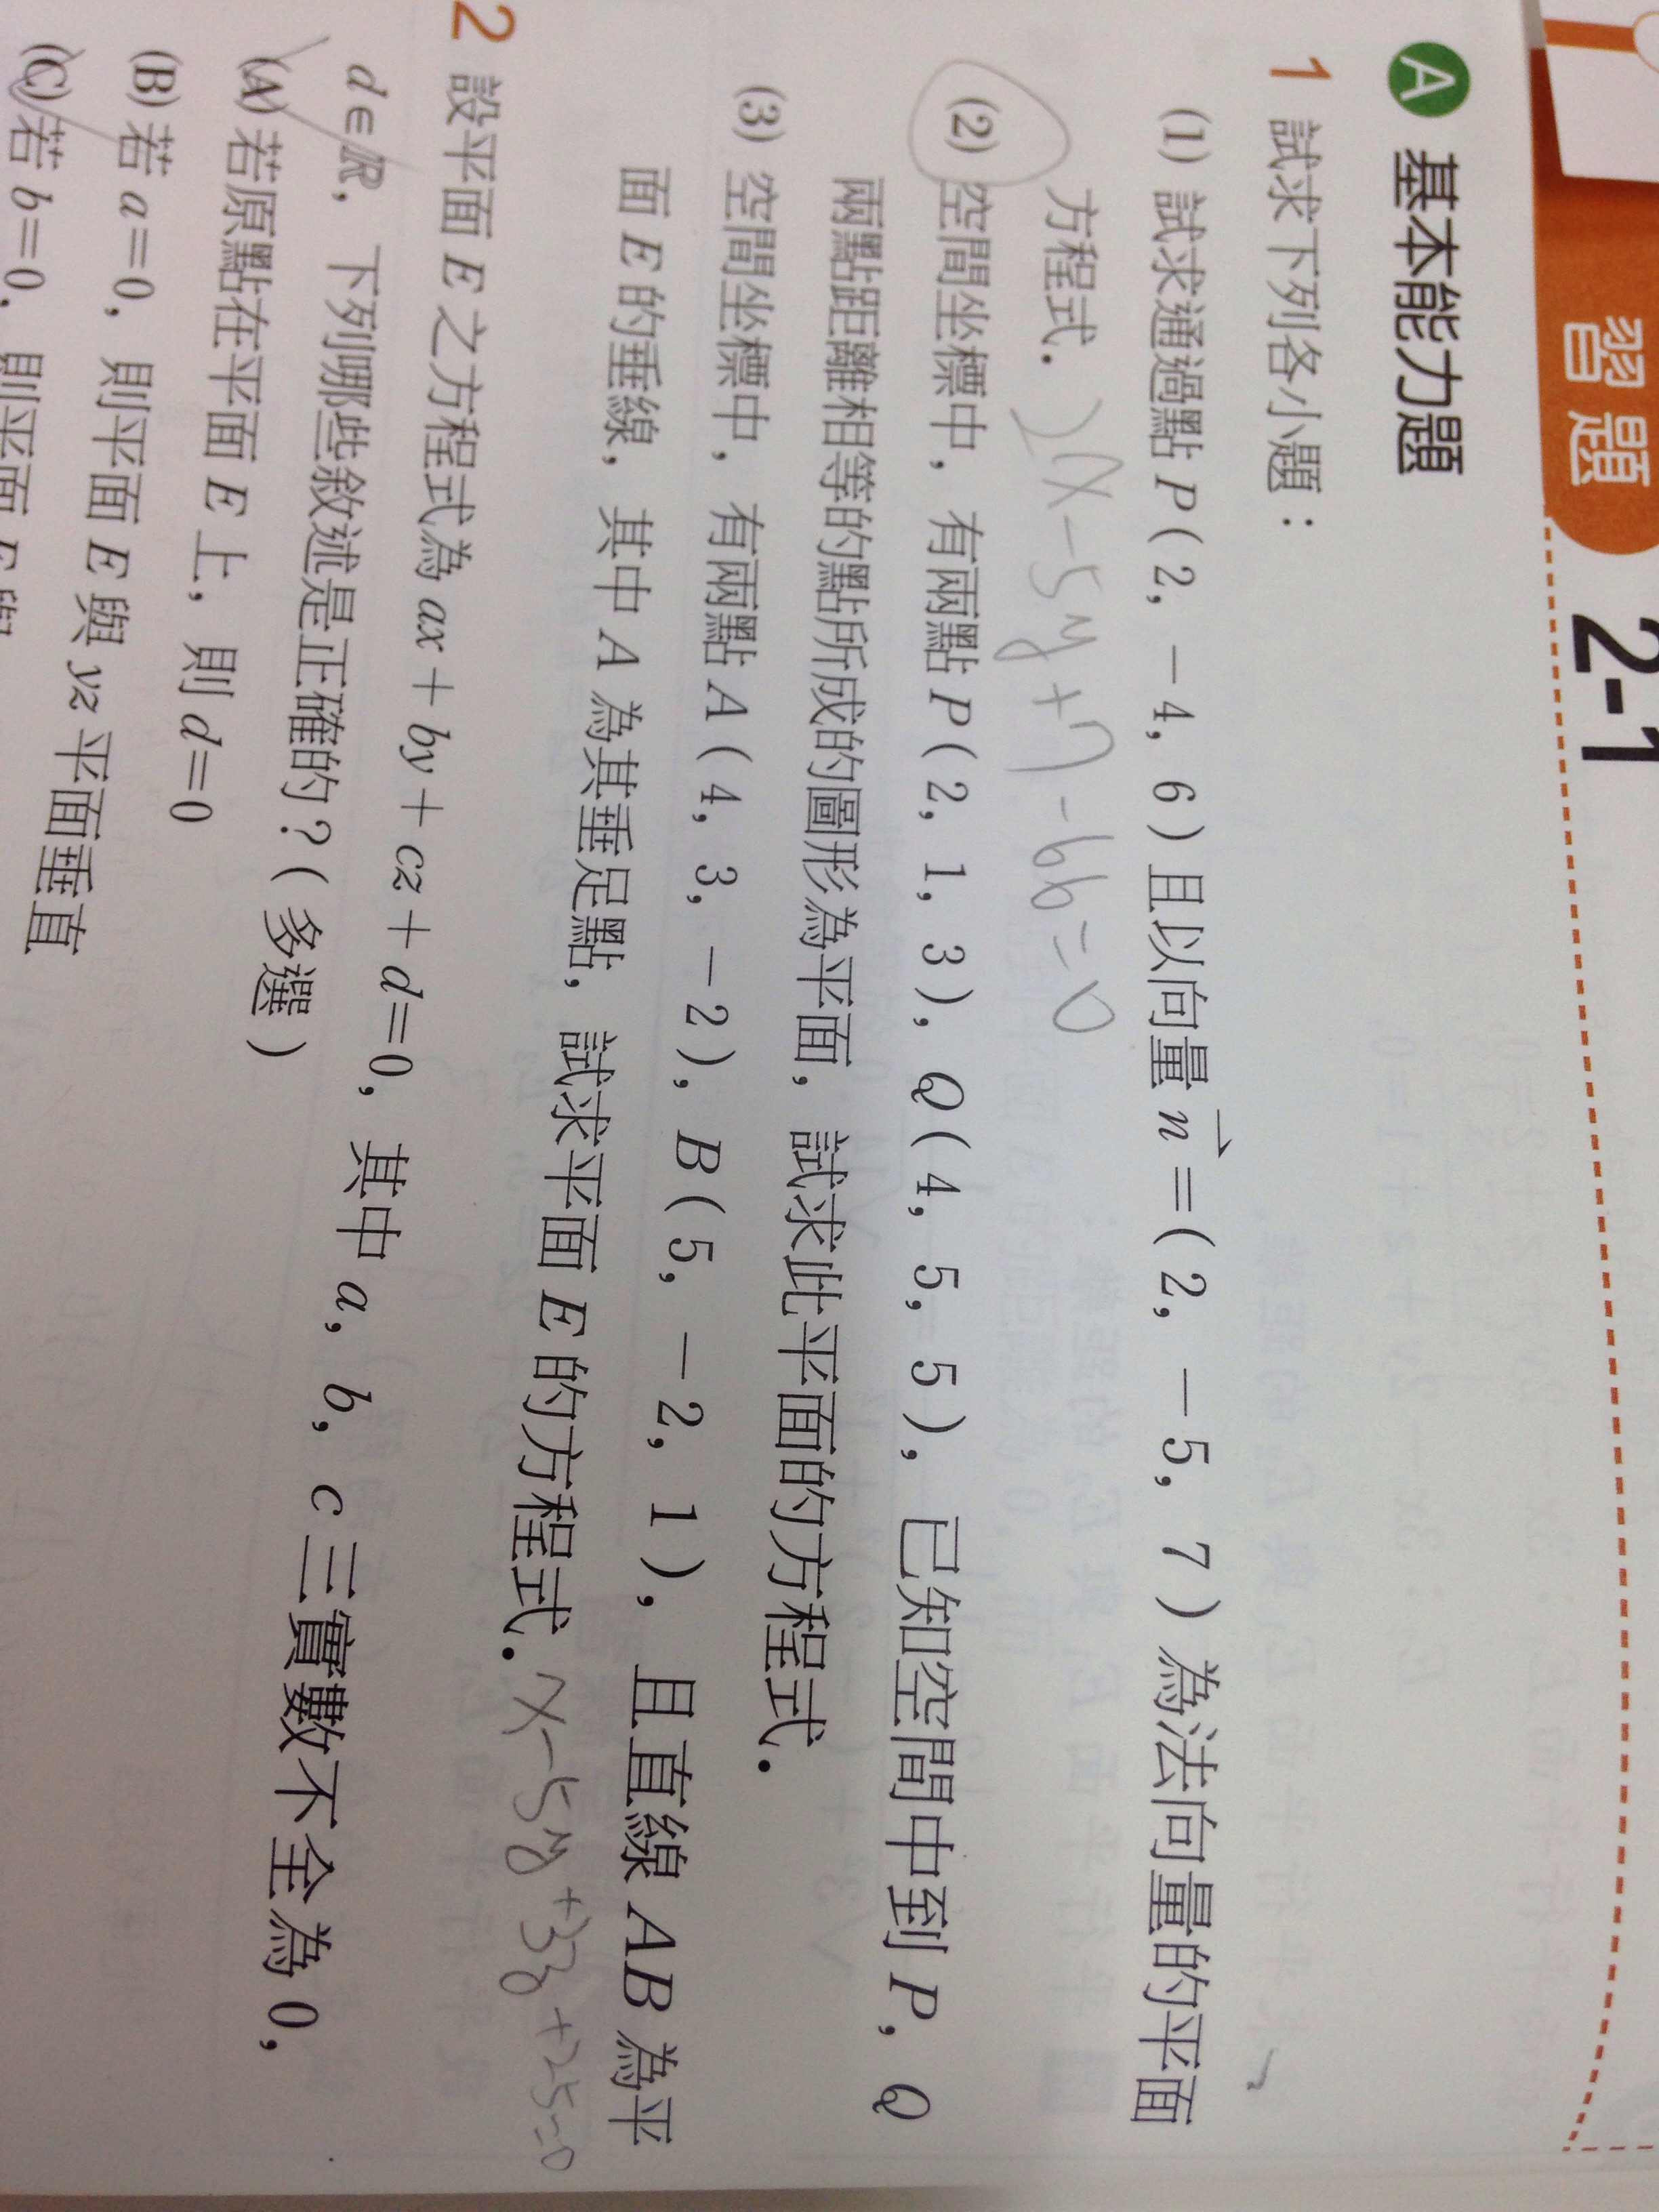 習題 2-1
A 基本能力題
1 試求下列各小題：
(1) 試求通過點 P(2, -4, 6)且以向量 n⃗=(2, -5, 7)為法向量的平面
方程式. 2x-5y+7-66=0
(2) 空間坐標中, 有兩點 P(2, 1, 3), Q(4, 5, 5), 已知空間中到 P, Q
兩點距離相等的點所成的圖形為平面, 試求此平面的方程式.
(3) 空間坐標中, 有兩點 A(4, 3, -2), B(5, -2, 1), 且直線 AB 為平
面 E 的垂線, 其中 A 為其垂足點, 試求平面 E 的方程式. x-5y+3z+25=0
2 設平面 E 之方程式為 ax+by+cz+d=0, 其中 a, b, c 三實數不全為 0,
d∈ℝ, 下列哪些敘述是正確的?(多選)
(A) 若原點在平面 E 上, 則 d=0
(B) 若 a=0, 則平面 E 與 yz 平面垂直
(C) 若 b=0, 則平面 E 與